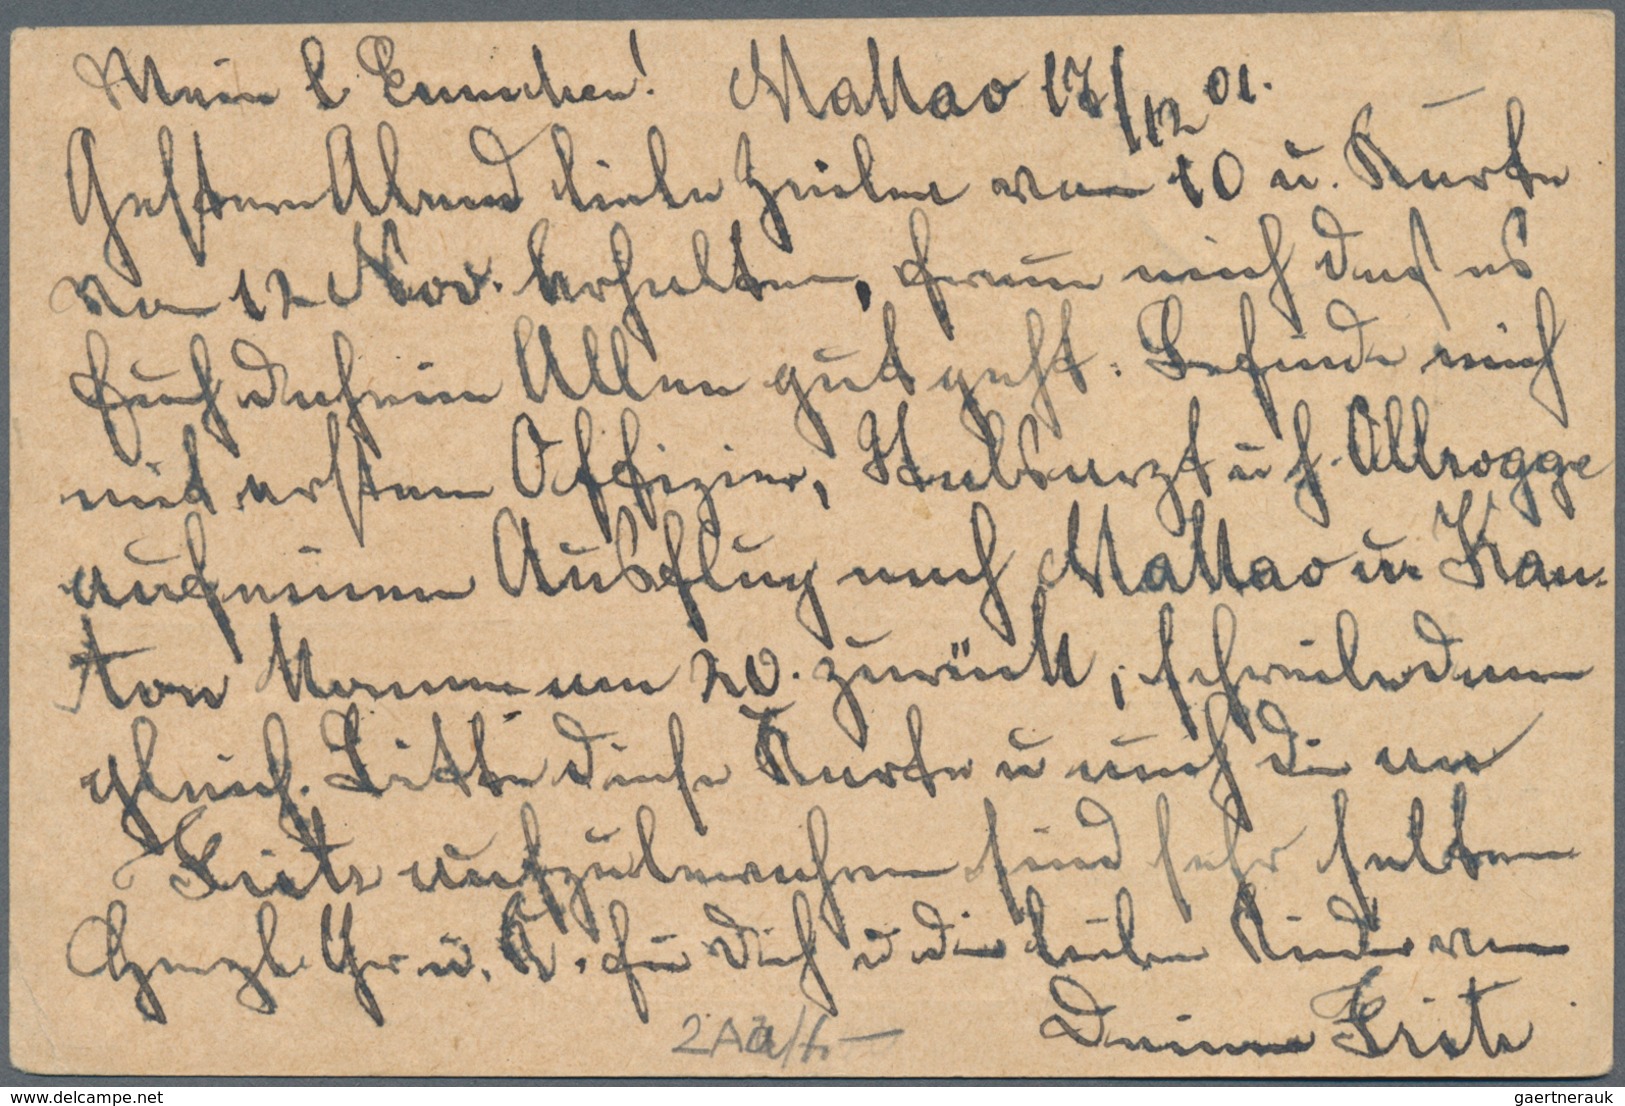 Mein l. Emmchen! Mallao 17/12 01.
Gestern Abend liebe Zeilen vom 10 u. Karte
vom 12 Nov. erhalten, freue mich daß es
Euch daheim Allen gut geht. Befinde mich
mit erstem Offizier, Stabsarzt u H. Allrogge
auf einem Ausflug nach Mallao u. Kan-
ton komme am 20. zurück, schreibe dann
gleich. Bitte diese Karte u auch die an
Fritz aufzubewahren sind sehr selten
Herzl. Gr u. K. für Dich u die lieben Kinder von
Deinem Fritz
2Aa/f. —
www.delcampe.net
gaertnerauk